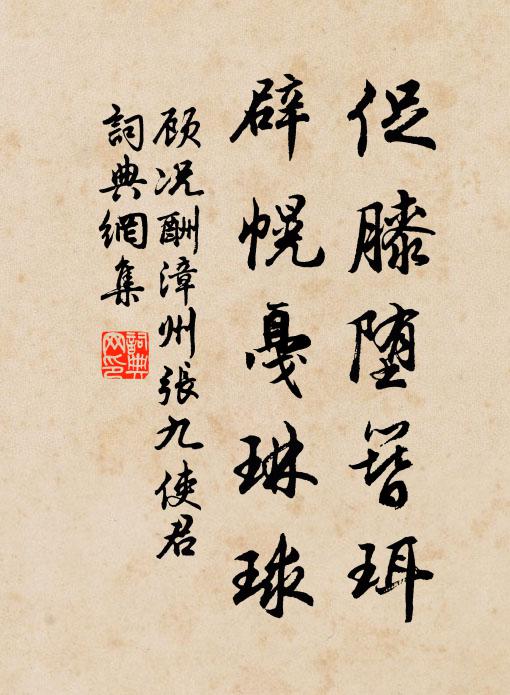 促膝堕簪珥
辟幌戛琳球
顾况酬漳州張九使君
詞典網集
詞典网印